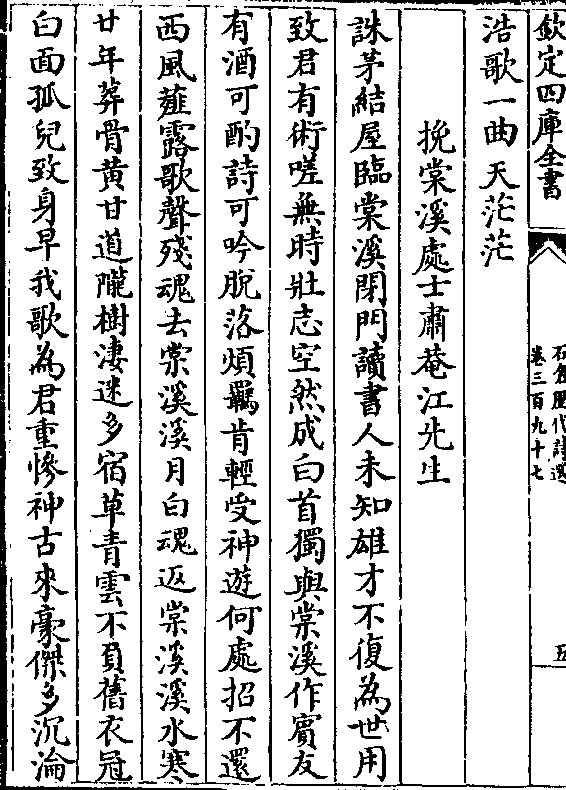 欽定四庫全書
石倉歷代詩選
卷三百九十七
五
浩歌一曲天茫茫
挽棠溪處士肅菴江先生
誅茅結屋臨棠溪閉門讀書人未知雄才不復為世用
致君有術嗟無時壯志空然成白首獨與棠溪作賓友
有酒可酌詩可吟脫落煩羈肯輕受神遊何處招不還
西風薤露歌聲殘魂去棠溪溪月白魂返棠溪溪水寒
廿年葬骨黃甘道隴樹淒迷多宿草青雲不負舊衣冠
白面孤兒致身早我歌為君重慘神古來豪傑多沉淪